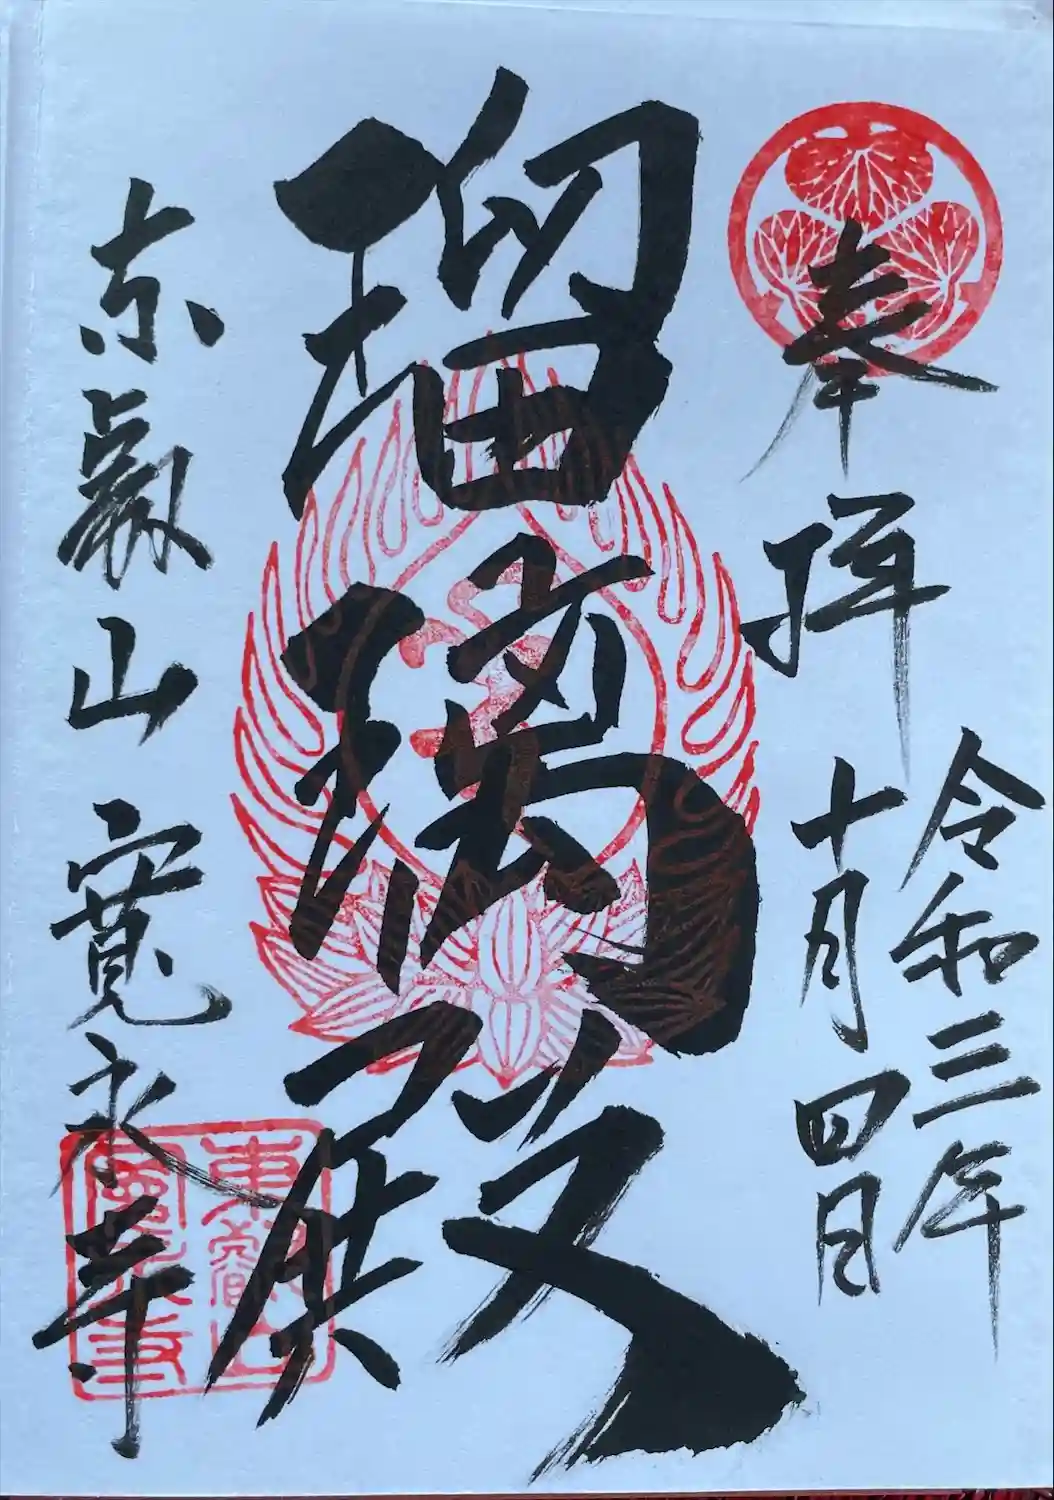 奉拝
令和三年
十月四日
瑠璃殿
東叡山 寛永寺
東叡山
寛永寺